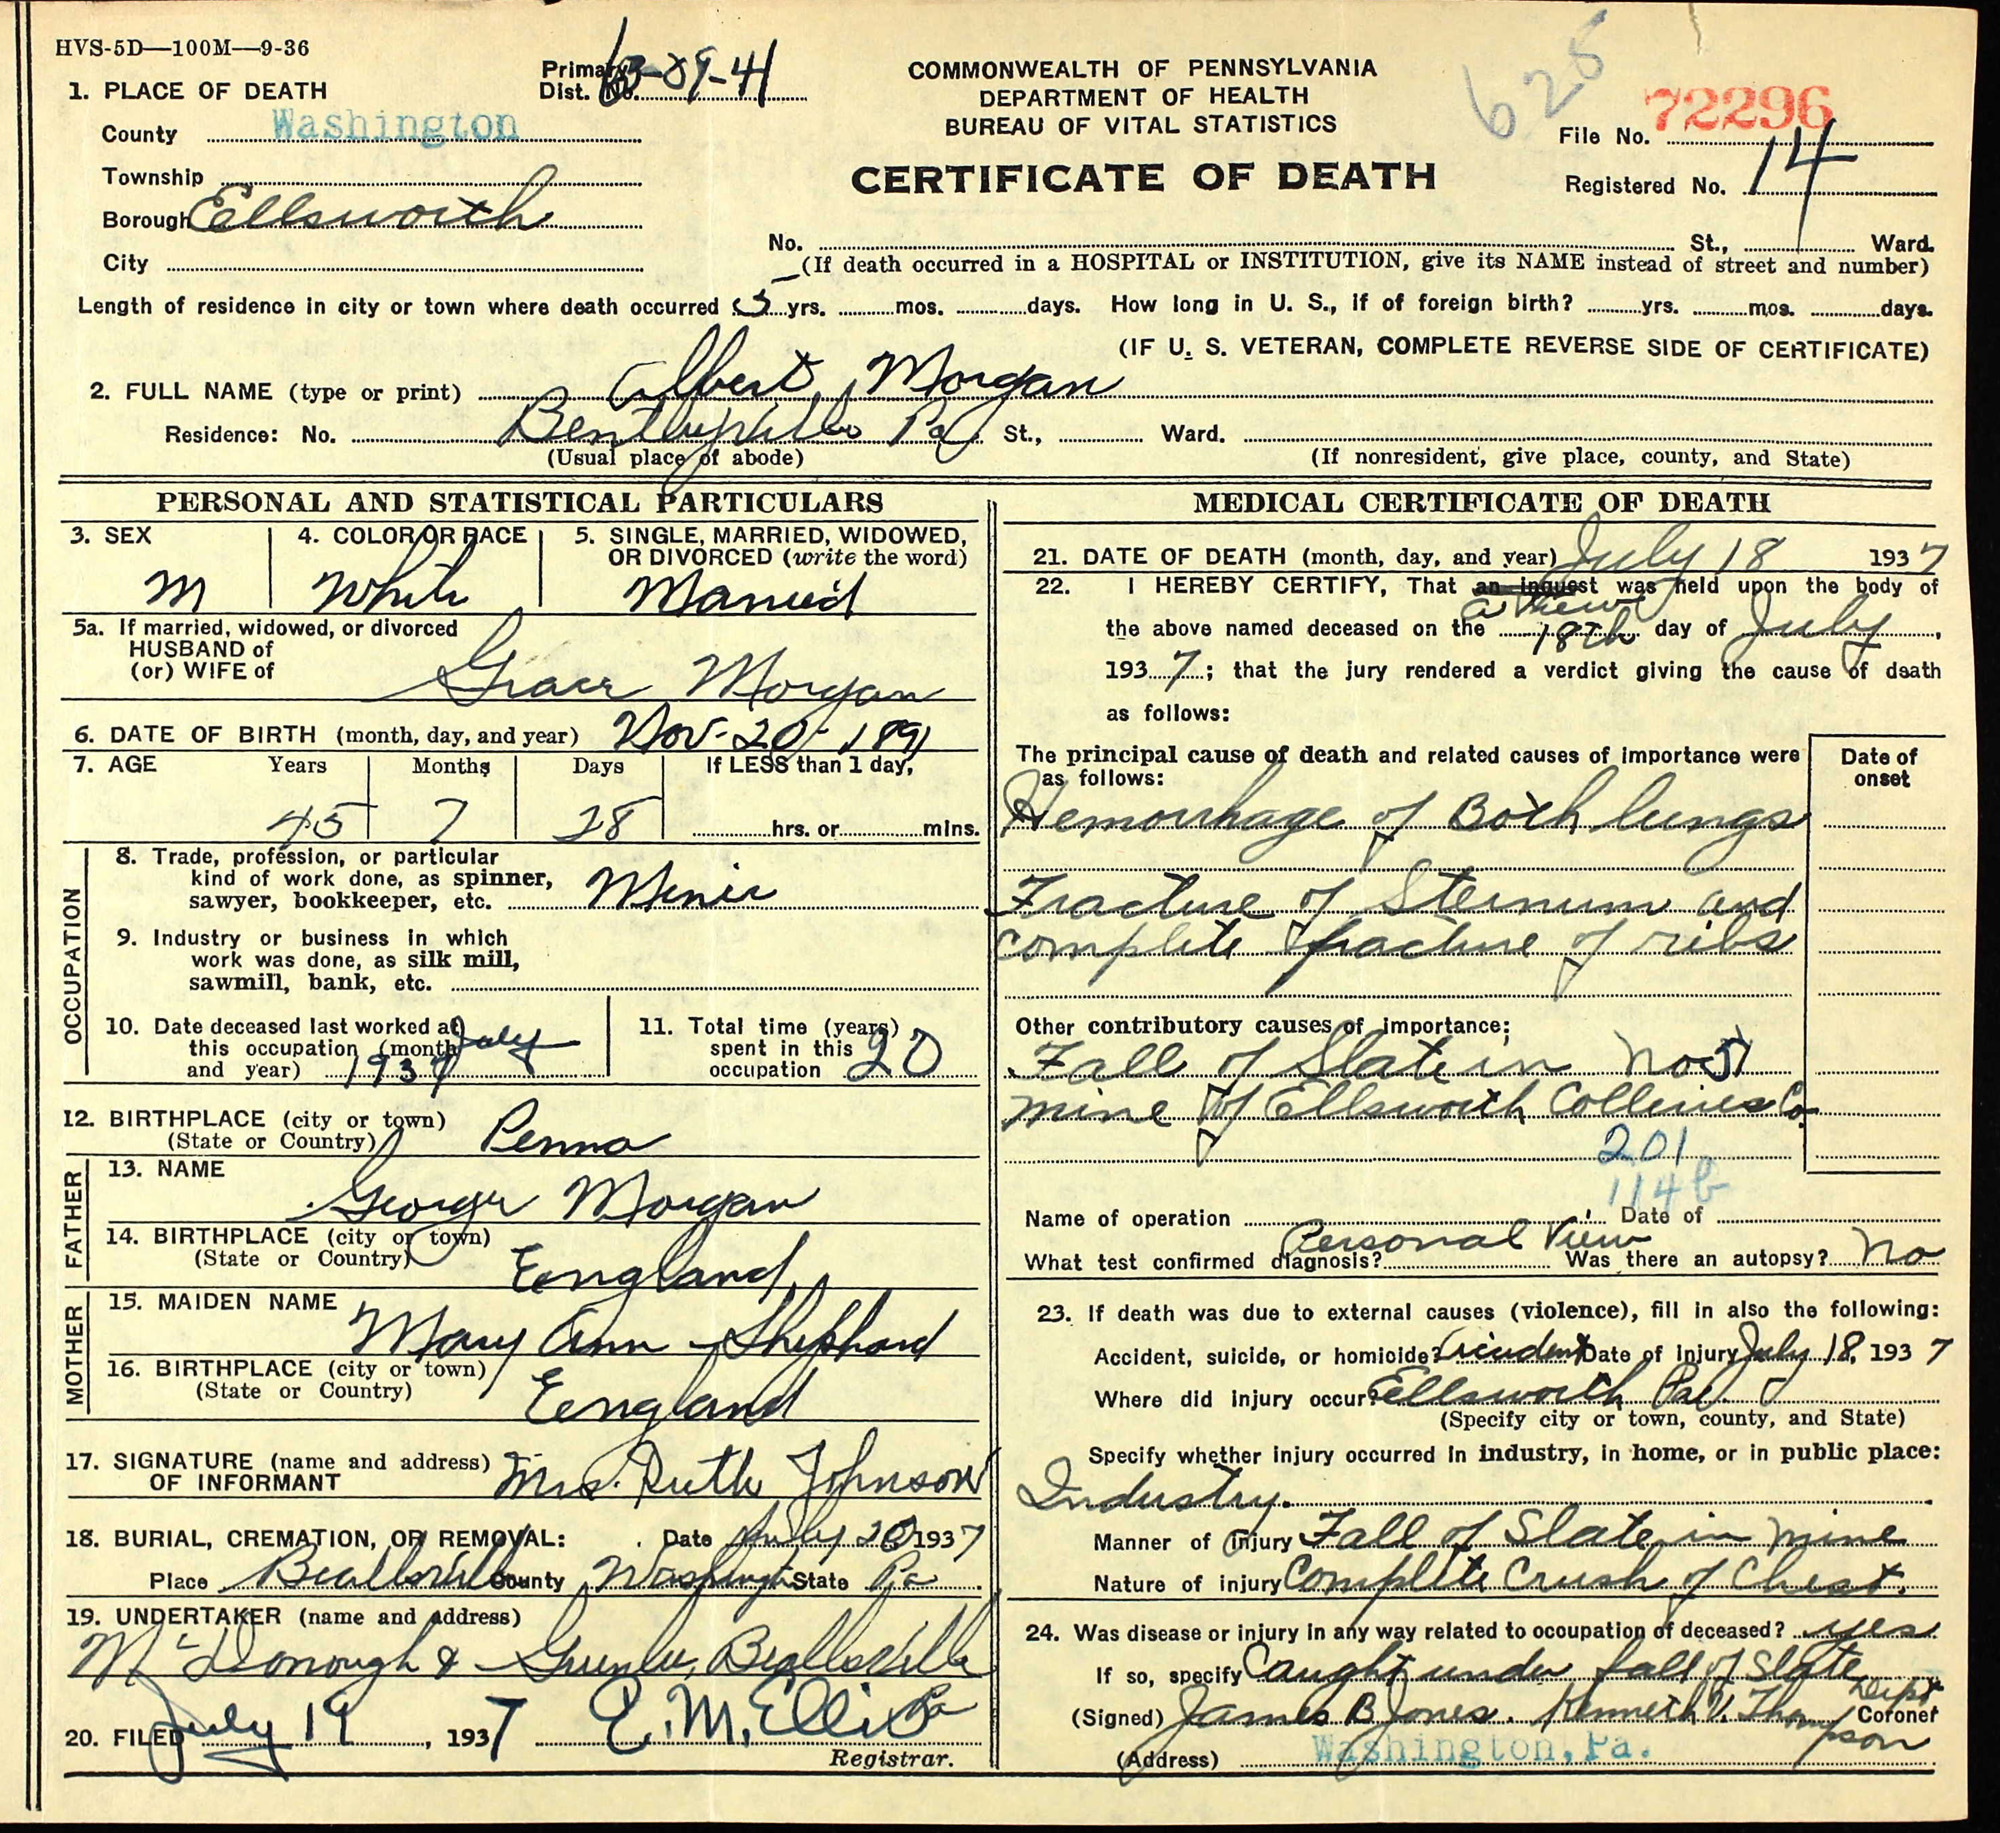 HVS-5D—100M—9-36
Primary
Dist. No. 63-09-41
COMMONWEALTH OF PENNSYLVANIA
DEPARTMENT OF HEALTH
BUREAU OF VITAL STATISTICS
CERTIFICATE OF DEATH
625
File No. 72296
Registered No. 14
1. PLACE OF DEATH
County Washington
Township
Borough Ellsworth
City
No. St., Ward.
(If death occurred in a HOSPITAL or INSTITUTION, give its NAME instead of street and number)
Length of residence in city or town where death occurred 5 yrs. mos. days. How long in U. S., if of foreign birth? yrs. mos. days.
(IF U. S. VETERAN, COMPLETE REVERSE SIDE OF CERTIFICATE)
2. FULL NAME (type or print) Albert Morgan
Residence: No. Bentleyville Pa St., Ward.
(Usual place of abode) (If nonresident, give place, county, and State)
PERSONAL AND STATISTICAL PARTICULARS
3. SEX 4. COLOR OR RACE 5. SINGLE, MARRIED, WIDOWED,
OR DIVORCED (write the word)
M White Married
5a. If married, widowed, or divorced
HUSBAND of
(or) WIFE of Grace Morgan
6. DATE OF BIRTH (month, day, and year) Nov-20-1891
7. AGE Years Months Days If LESS than 1 day,
45 7 28 hrs. or mins.
OCCUPATION
8. Trade, profession, or particular
kind of work done, as spinner,
sawyer, bookkeeper, etc. Miner
9. Industry or business in which
work was done, as silk mill,
sawmill, bank, etc.
10. Date deceased last worked at
this occupation (month July
and year) 1937
11. Total time (years)
spent in this
occupation 20
12. BIRTHPLACE (city or town)
(State or Country) Penna
FATHER
13. NAME
George Morgan
14. BIRTHPLACE (city or town)
(State or Country) England
MOTHER
15. MAIDEN NAME
Mary Ann Shephard
16. BIRTHPLACE (city or town)
(State or Country) England
17. SIGNATURE (name and address)
OF INFORMANT Mrs. Ruth Johnson
18. BURIAL, CREMATION, OR REMOVAL: Date July 20 1937
Place Beallsville County Washington State Pa
19. UNDERTAKER (name and address)
McDonough & Greenlee, Beallsville
Pa
20. FILED July 19, 1937 E. M. Ellis
Registrar.
MEDICAL CERTIFICATE OF DEATH
21. DATE OF DEATH (month, day, and year) July 18 1937
22. I HEREBY CERTIFY, That an inquest was held upon the body of
a View
the above named deceased on the 18th day of July,
1937; that the jury rendered a verdict giving the cause of death
as follows:
The principal cause of death and related causes of importance were
as follows:
Date of
onset
Hemorrhage of Both lungs
Fracture of Sternum and
complete fracture of ribs
Other contributory causes of importance:
Fall of Slate in No 51
mine of Ellsworth Collieries Co.
201
114b
Name of operation Date of
What test confirmed diagnosis? Personal View Was there an autopsy? No
23. If death was due to external causes (violence), fill in also the following:
Accident, suicide, or homicide? Accident Date of injury July 18, 1937
Where did injury occur? Ellsworth Pa.
(Specify city or town, county, and State)
Specify whether injury occurred in industry, in home, or in public place:
Industry.
Manner of injury Fall of Slate in mine
Nature of injury Complete Crush of Chest.
24. Was disease or injury in any way related to occupation of deceased? yes
If so, specify Caught under fall of Slate
(Signed) James B Jones. Kenneth V. Thompson Dept. Coroner
(Address) Washington, Pa.